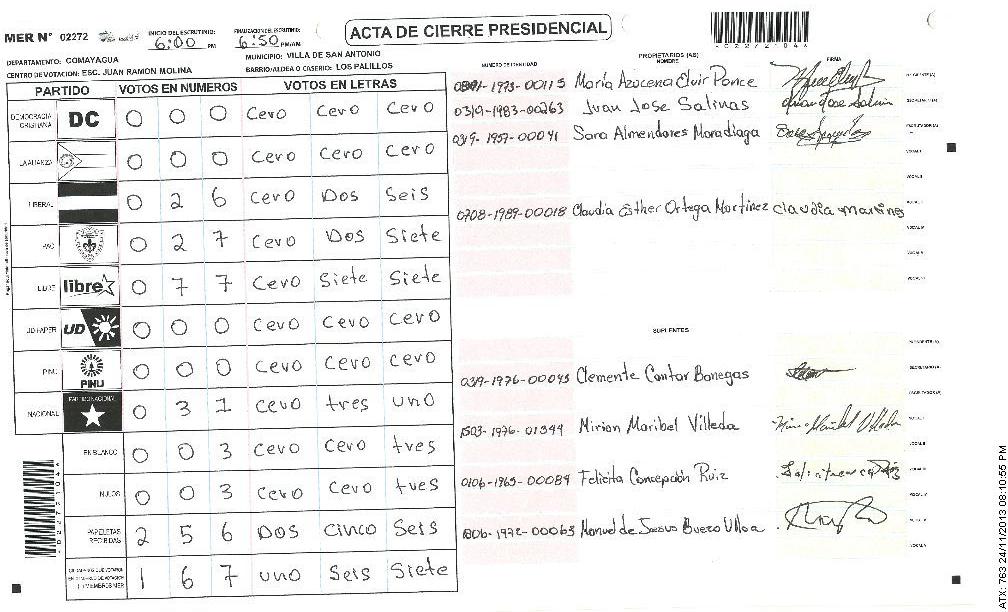 MER N° 02272
INICIO DEL ESCRUTINIO: 6:00 PM
FINALIZACION DEL ESCRUTINIO: 6:50 PM/AM
ACTA DE CIERRE PRESIDENCIAL
DEPARTAMENTO: COMAYAGUA
MUNICIPIO: VILLA DE SAN ANTONIO
CENTRO DE VOTACION: ESC. JUAN RAMON MOLINA
BARRIO/ALDEA O CASERIO: LOS PALILLOS
PARTIDO VOTOS EN NUMEROS VOTOS EN LETRAS
DEMOCRACIA CRISTIANA DC 0 0 0 Cero Cero Cero
LA ALIANZA 0 0 0 Cero Cero Cero
LIBERAL 0 2 6 Cero Dos Seis
PAC 0 2 7 Cero Dos Siete
LIBRE libre 0 7 7 Cero Siete Siete
UD FAPER UD 0 0 0 Cero Cero Cero
PINU PINU 0 0 0 Cero Cero Cero
NACIONAL PARTIDO NACIONAL 0 3 1 Cero tres uno
EN BLANCO 0 0 3 Cero Cero tres
NULOS 0 0 3 Cero Cero tres
PAPELETAS RECIBIDAS 2 5 6 Dos Cinco Seis
1 6 7 uno Seis Siete
NUMERO DE IDENTIDAD PROPIETARIOS (AS) NOMBRE FIRMA
-1973-00115 María Azucena Elvir Ponce
0319-1983-00263 Juan Jose Salinas Juan Jose Salin
0319-1957-00041 Sara Almendares Maradiaga
0708-1989-00018 Claudia Esther Ortega Martinez Claudia Martinez
SUPLENTES
0319-1976-00043 Clemente Cantor Banegas
1503-1976-01344 Mirian Maribel Villeda
0106-1965-00084 Felicita Concepción Ruiz
1806-1972-00063 Manuel de Jesus Buezo Ulloa
ATX: 763 24/11/2013 08:10:55 PM